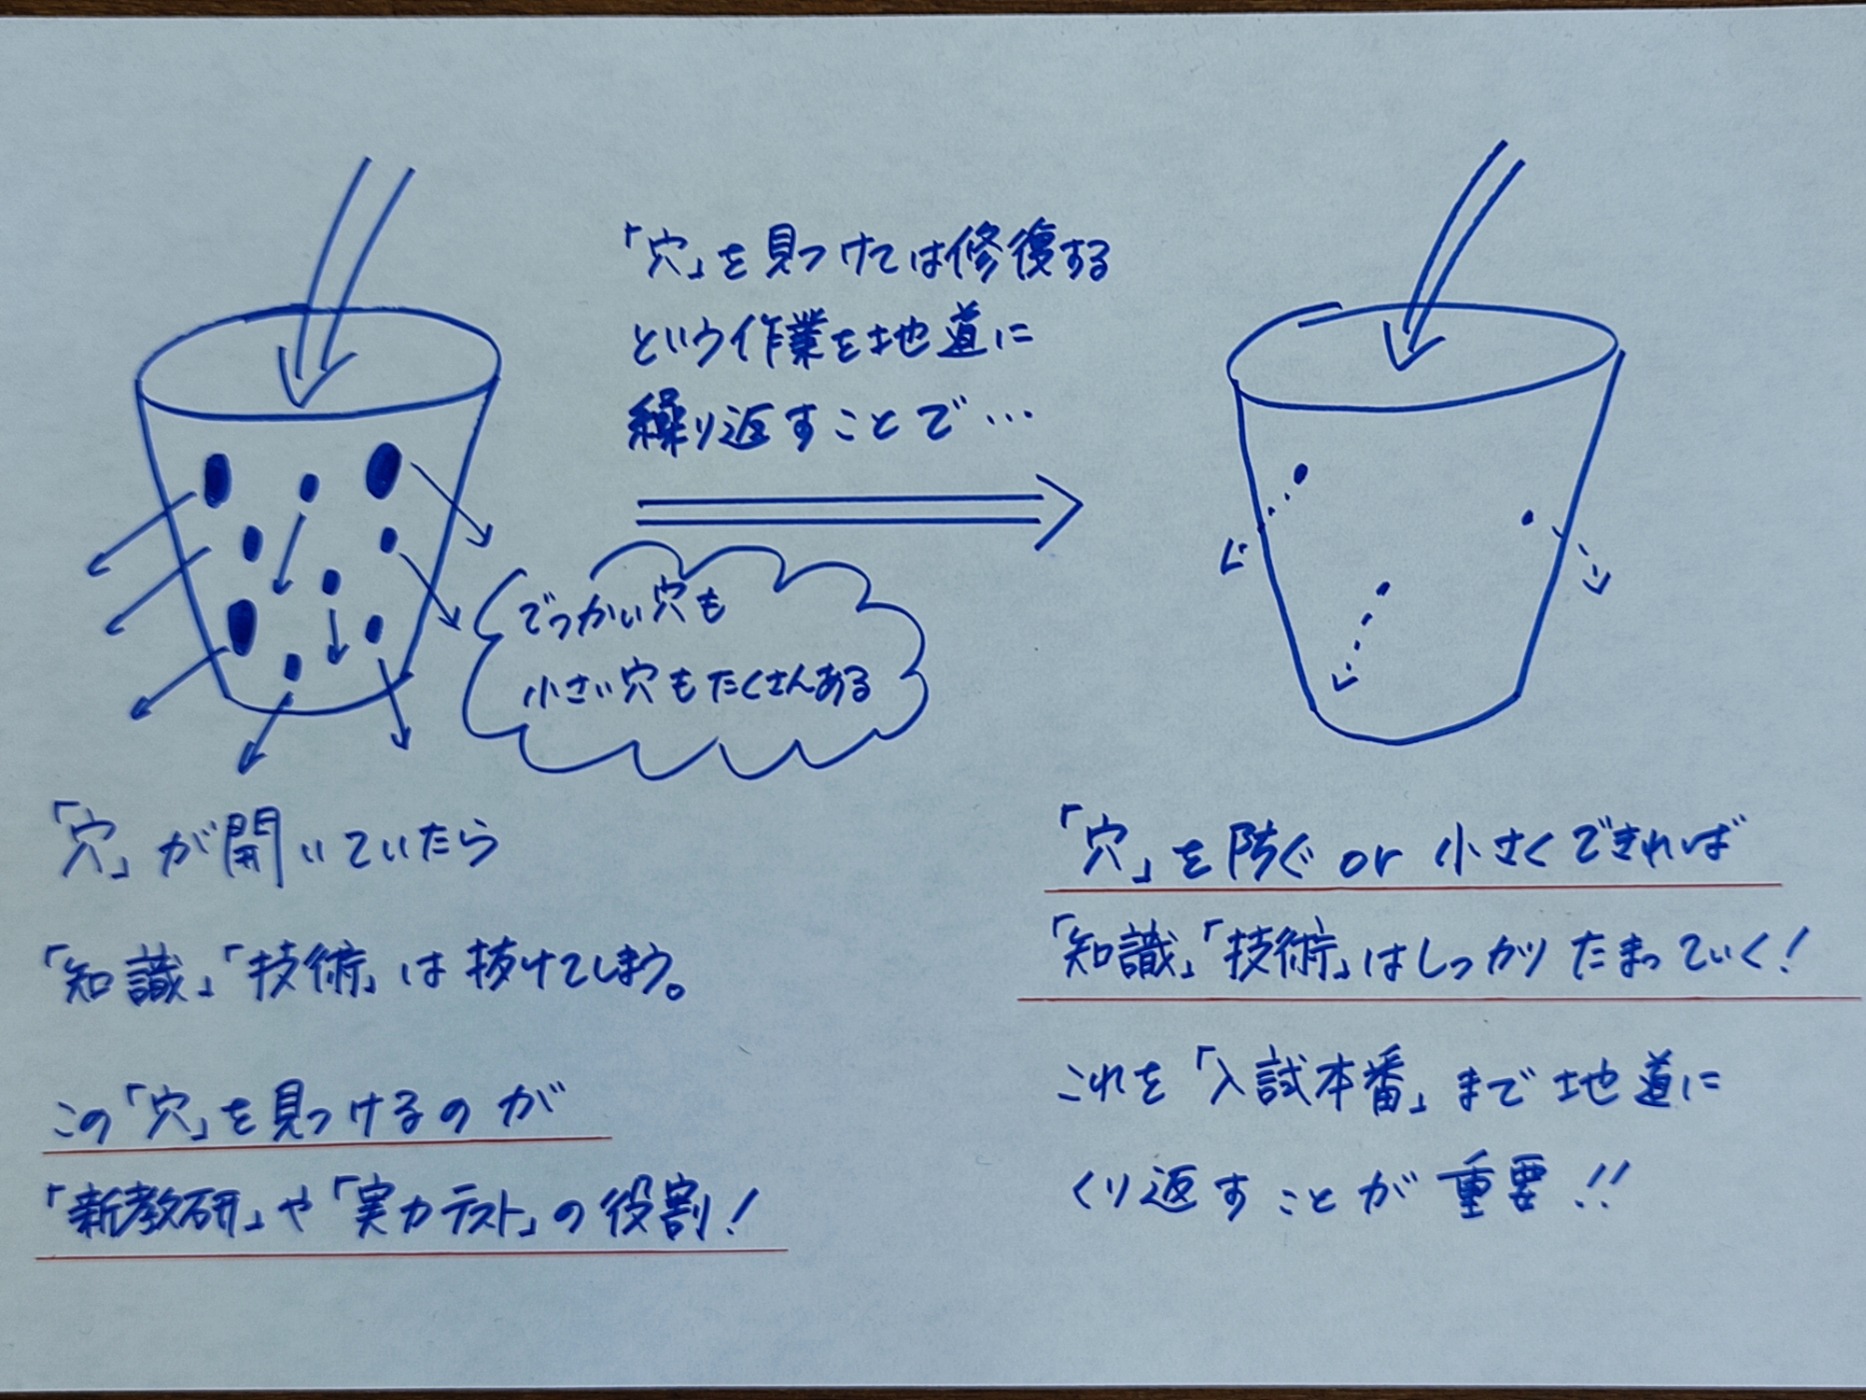 「穴」を見つけては修復する
という作業を地道に
繰り返すことで…
でっかい穴も
小さい穴もたくさんある
「穴」が開いていたら
「知識」「技術」は抜けてしまう。
この「穴」を見つけるのが
「新教研」や「実力テスト」の役割!
「穴」を防ぐ or 小さくできれば
「知識」「技術」はしっかりたまっていく!
これを「入試本番」まで地道に
くり返すことが重要!!